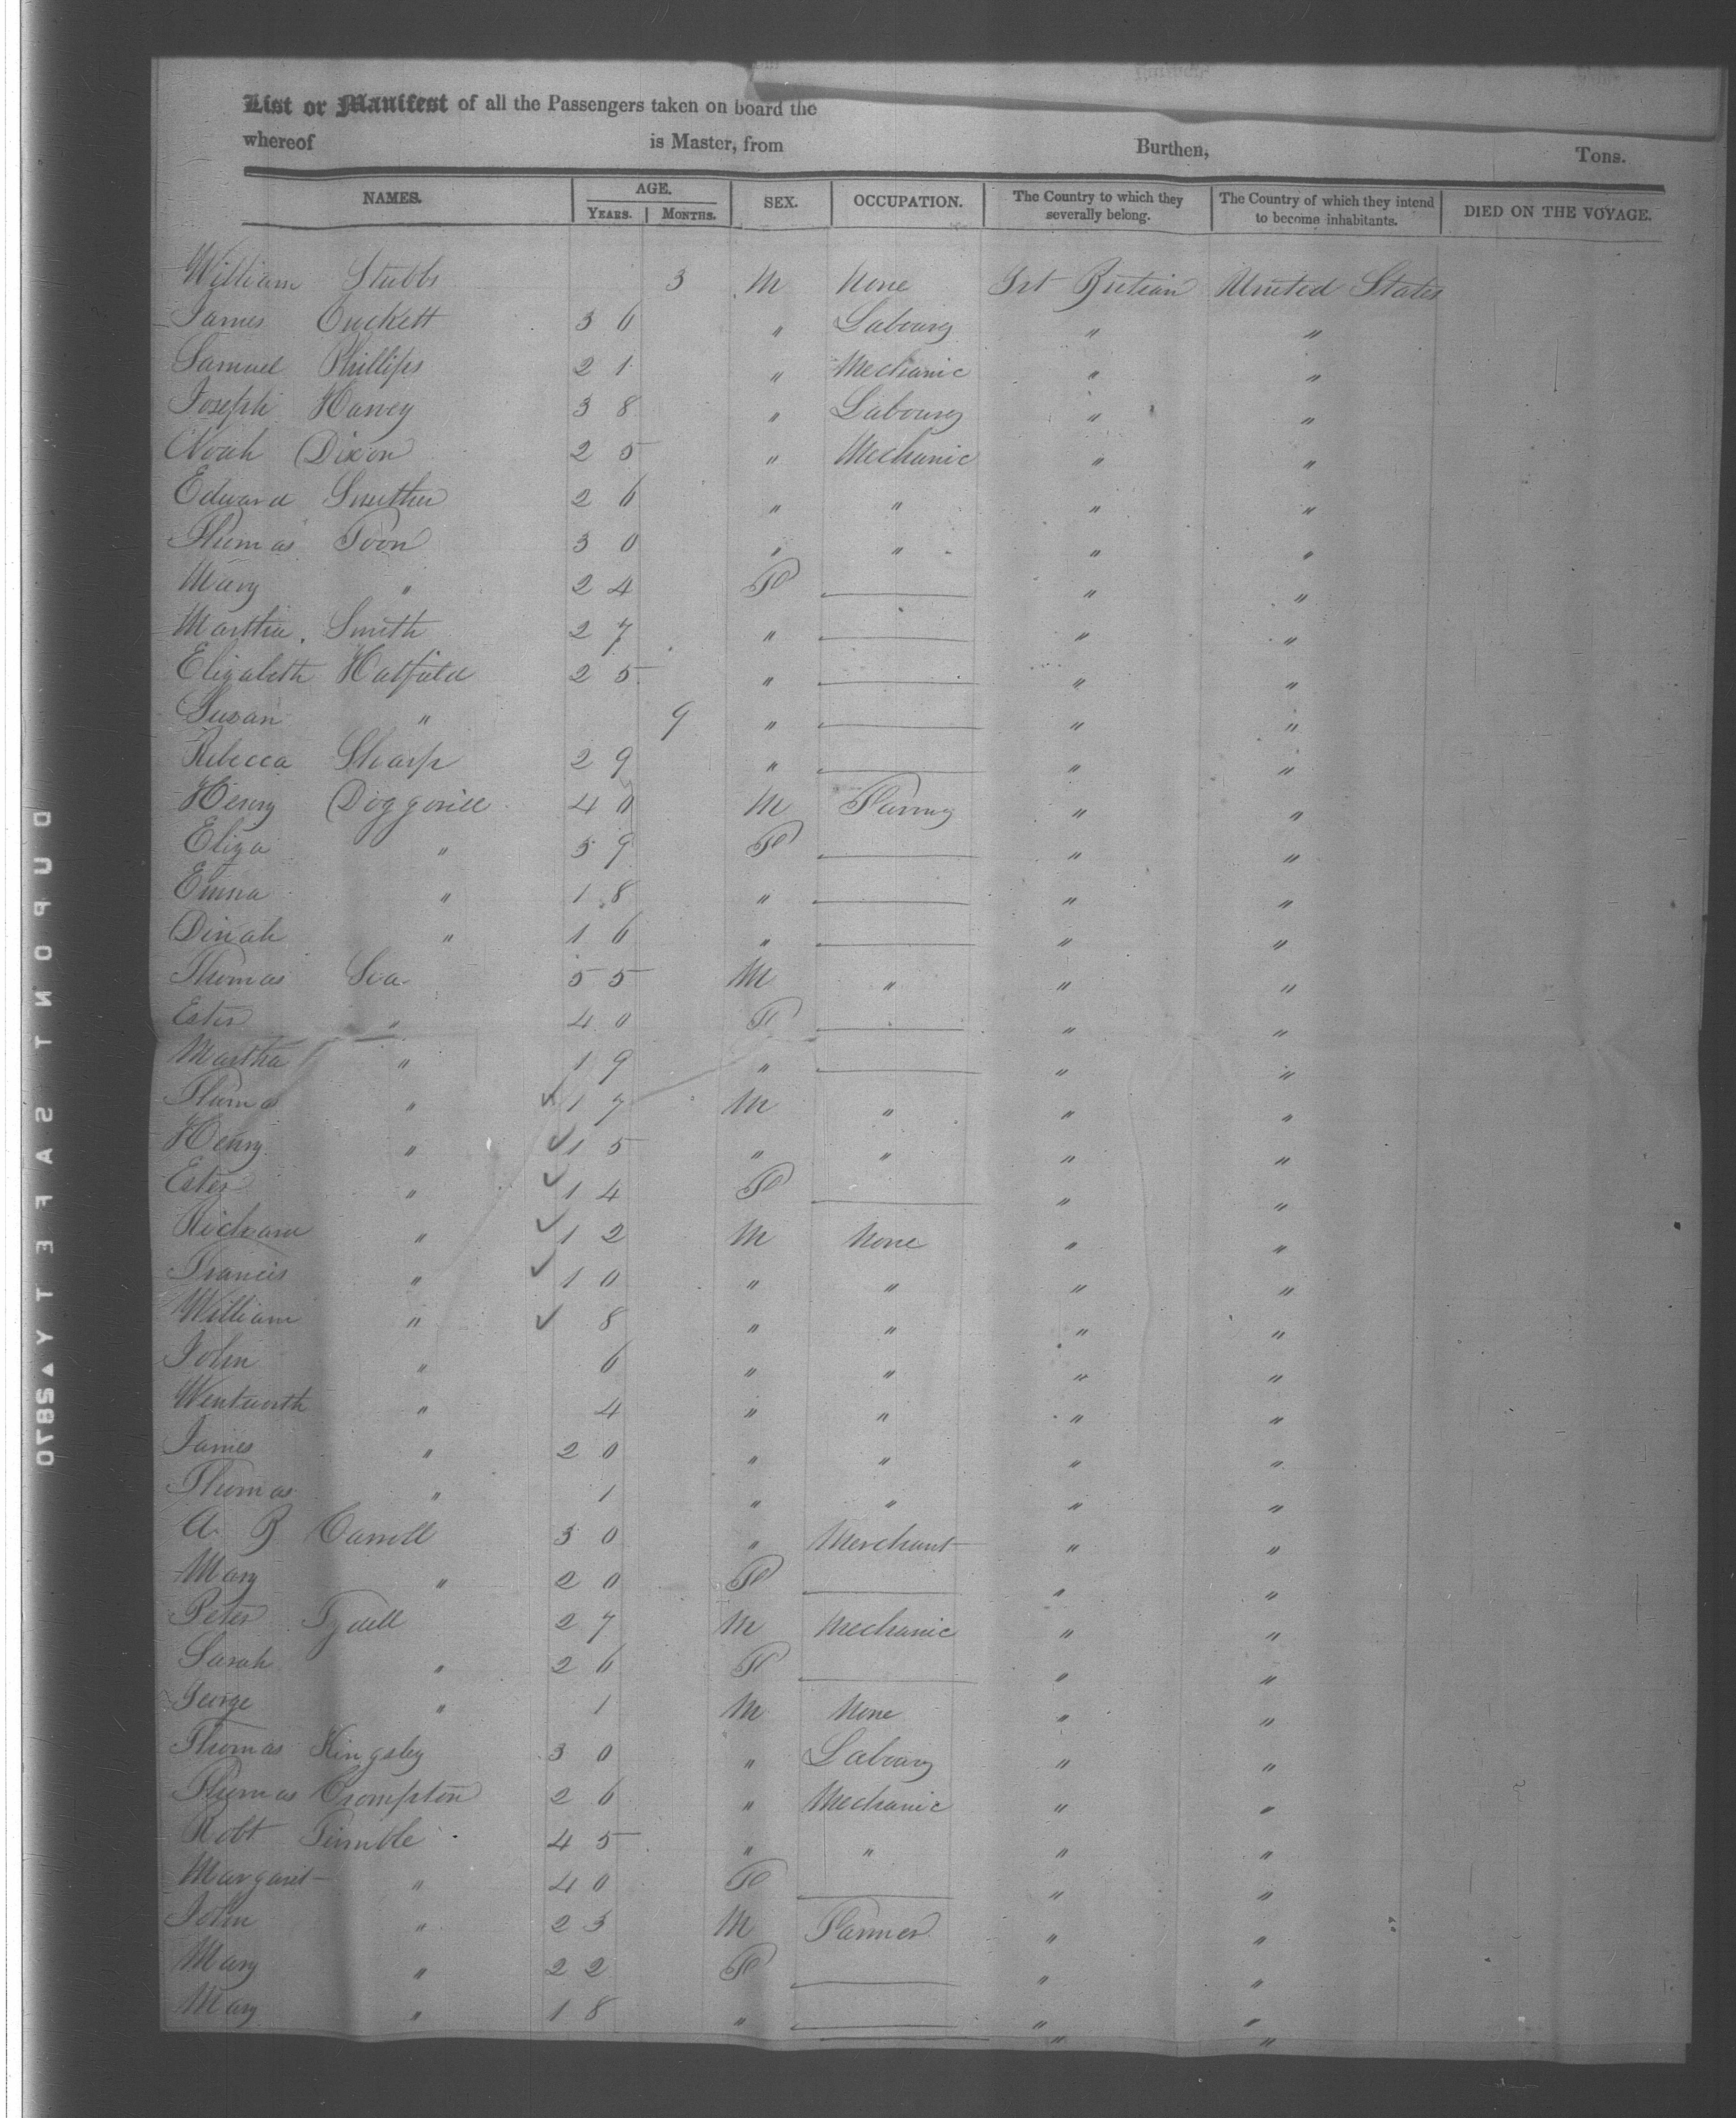 List or Manifest of all the Passengers taken on board the
whereof is Master, from Burthen, Tons.
NAMES. AGE. YEARS. MONTHS. SEX. OCCUPATION. The Country to which they severally belong. The Country of which they intend to become inhabitants. DIED ON THE VOYAGE.
William Stubbs 3 M None Grt Britian United States
James Tuckett 36 " Labourer " "
Samuel Phillips 21 " Mechanic " "
Joseph Harvey 38 " Labourer " "
Noah Dixon 25 " Mechanic " "
Edward Smither 26 " " " "
Thomas Poon 30 " " " "
Mary " 24 F " "
Martha Smith 27 " " "
Elizabeth Hatfield 25 " " "
Susan " 9 " " "
Rebecca Sharp 29 " " "
Henry Doggorill 40 M Farmer " "
Eliza " 39 F " "
Emma " 18 " " "
Dinah " 16 " " "
Thomas Sea 55 M " " "
Ester " 40 F " "
Martha " 19 " " "
Thomas " ✓ 17 M " " "
Henry " ✓ 15 " " " "
Ester " ✓ 14 F " "
Richard " ✓ 12 M None " "
Francis " ✓ 10 " " " "
William " ✓ 8 " " " "
John " 6 " " " "
Wentworth " 4 " " " "
James " 20 " " " "
Thomas " 1 " " " "
A. B Carrell 30 " Merchant " "
Mary " 20 F " "
Peter Tydell 27 M Mechanic " "
Sarah " 26 F " "
George " 1 M None " "
Thomas Kingsley 30 " Labourer " "
Thomas Crompton 26 " Mechanic " "
Robt Timble 45 " " " "
Margaret " 40 F " "
John " 23 M Farmer " "
Mary " 22 F " "
Mary " 18 " " "
" "
DUPONT SAFETY 2870